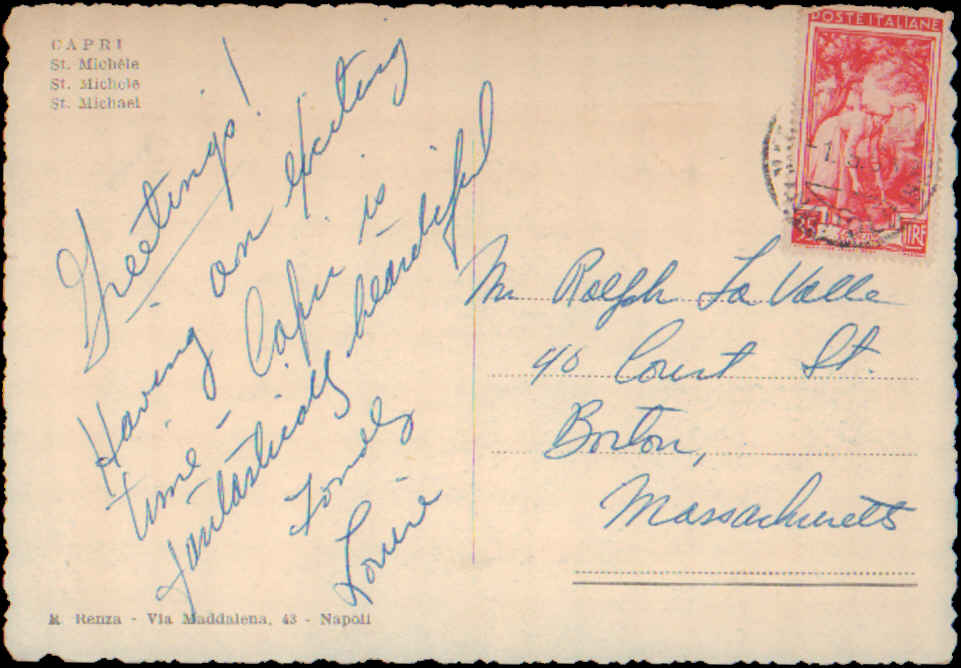 CAPRI
St. Michèle
St. Michele
St. Michael
Greetings!
Having an exciting
time - Capri is
fantastically beautiful
Fondly
POSTE ITALIANE
LIRE
Mr Ralph La Valle
40 Court St.
Boston,
Massachusetts
Renza - Via Maddalena, 43 - Napoli